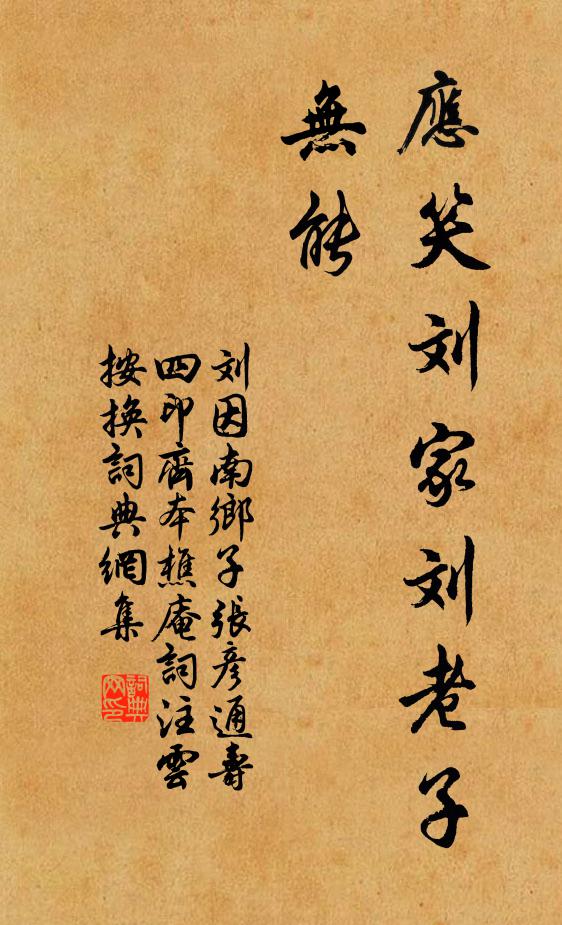 應笑刘家刘老子
無能
刘因南鄉子張彦通壽
四印齋本樵庵詞注雲
按換詞典網集
詞典
网印